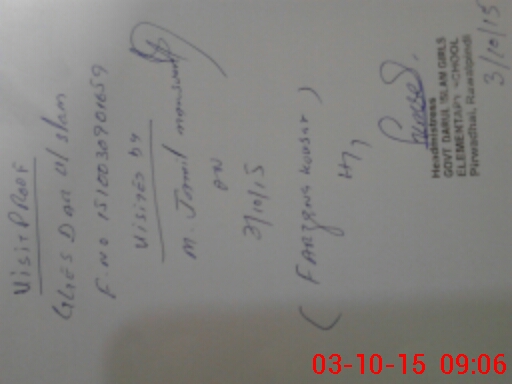 VISIT PROOF
GGES Dar ul Islam
F. No 1510030901659
Visited by
M. Jamil
on
3/10/15
( FARZANA KOUSAR )
HM
Headmistress
GOVT DARUL ISLAM GIRLS
ELEMENTARY SCHOOL
Pirwadhai, Rawalpindi
3/10/15
03-10-15 09:06